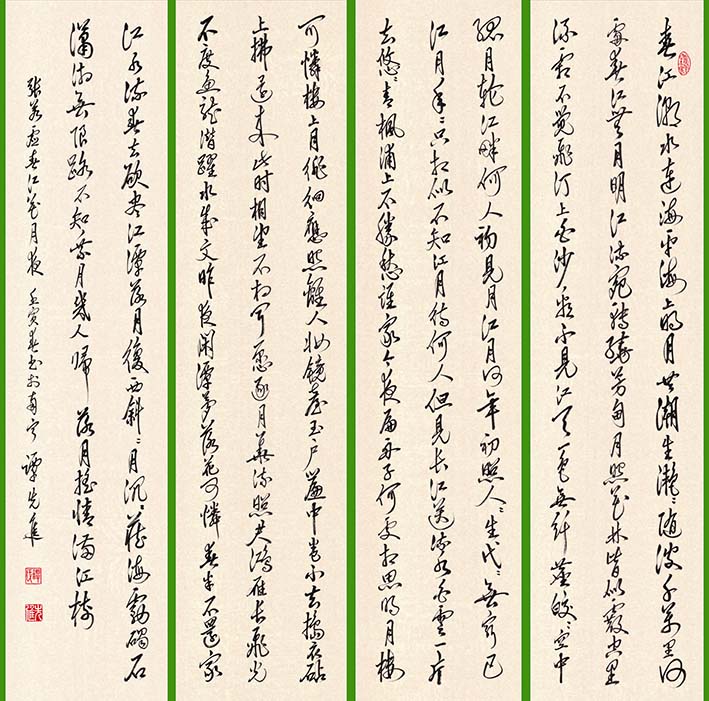 春江潮水連海平海上明月共潮生灩〻随波千萬里何
處春江無月明江流宛轉繞芳甸月照花林皆似霰空里
流霜不觉飛汀上白沙看不見江天一色無纤塵皎〻空中
孤月轮江畔何人初見月江月何年初照人〻生代〻無穷已
江月年〻只相似不知江月待何人但見长江送流水白雲一片
去悠〻青枫浦上不勝愁谁家今夜扁舟子何處相思明月楼
可憐楼上月徘徊應照離人妝镜臺玉户簾中卷不去擣衣砧
上拂還来此时相望不相闻愿逐月華流照君鸿雁长飛光
不度魚龍潜躍水成文昨夜闲潭夢落花可憐春半不還家
江水流春去欲尽江潭落月復西斜〻月沉〻藏海霧碣石
瀟湘無限路不知乘月幾人歸落月摇情满江树
張若虚春江花月夜 壬寅春书於南宁 谭先進